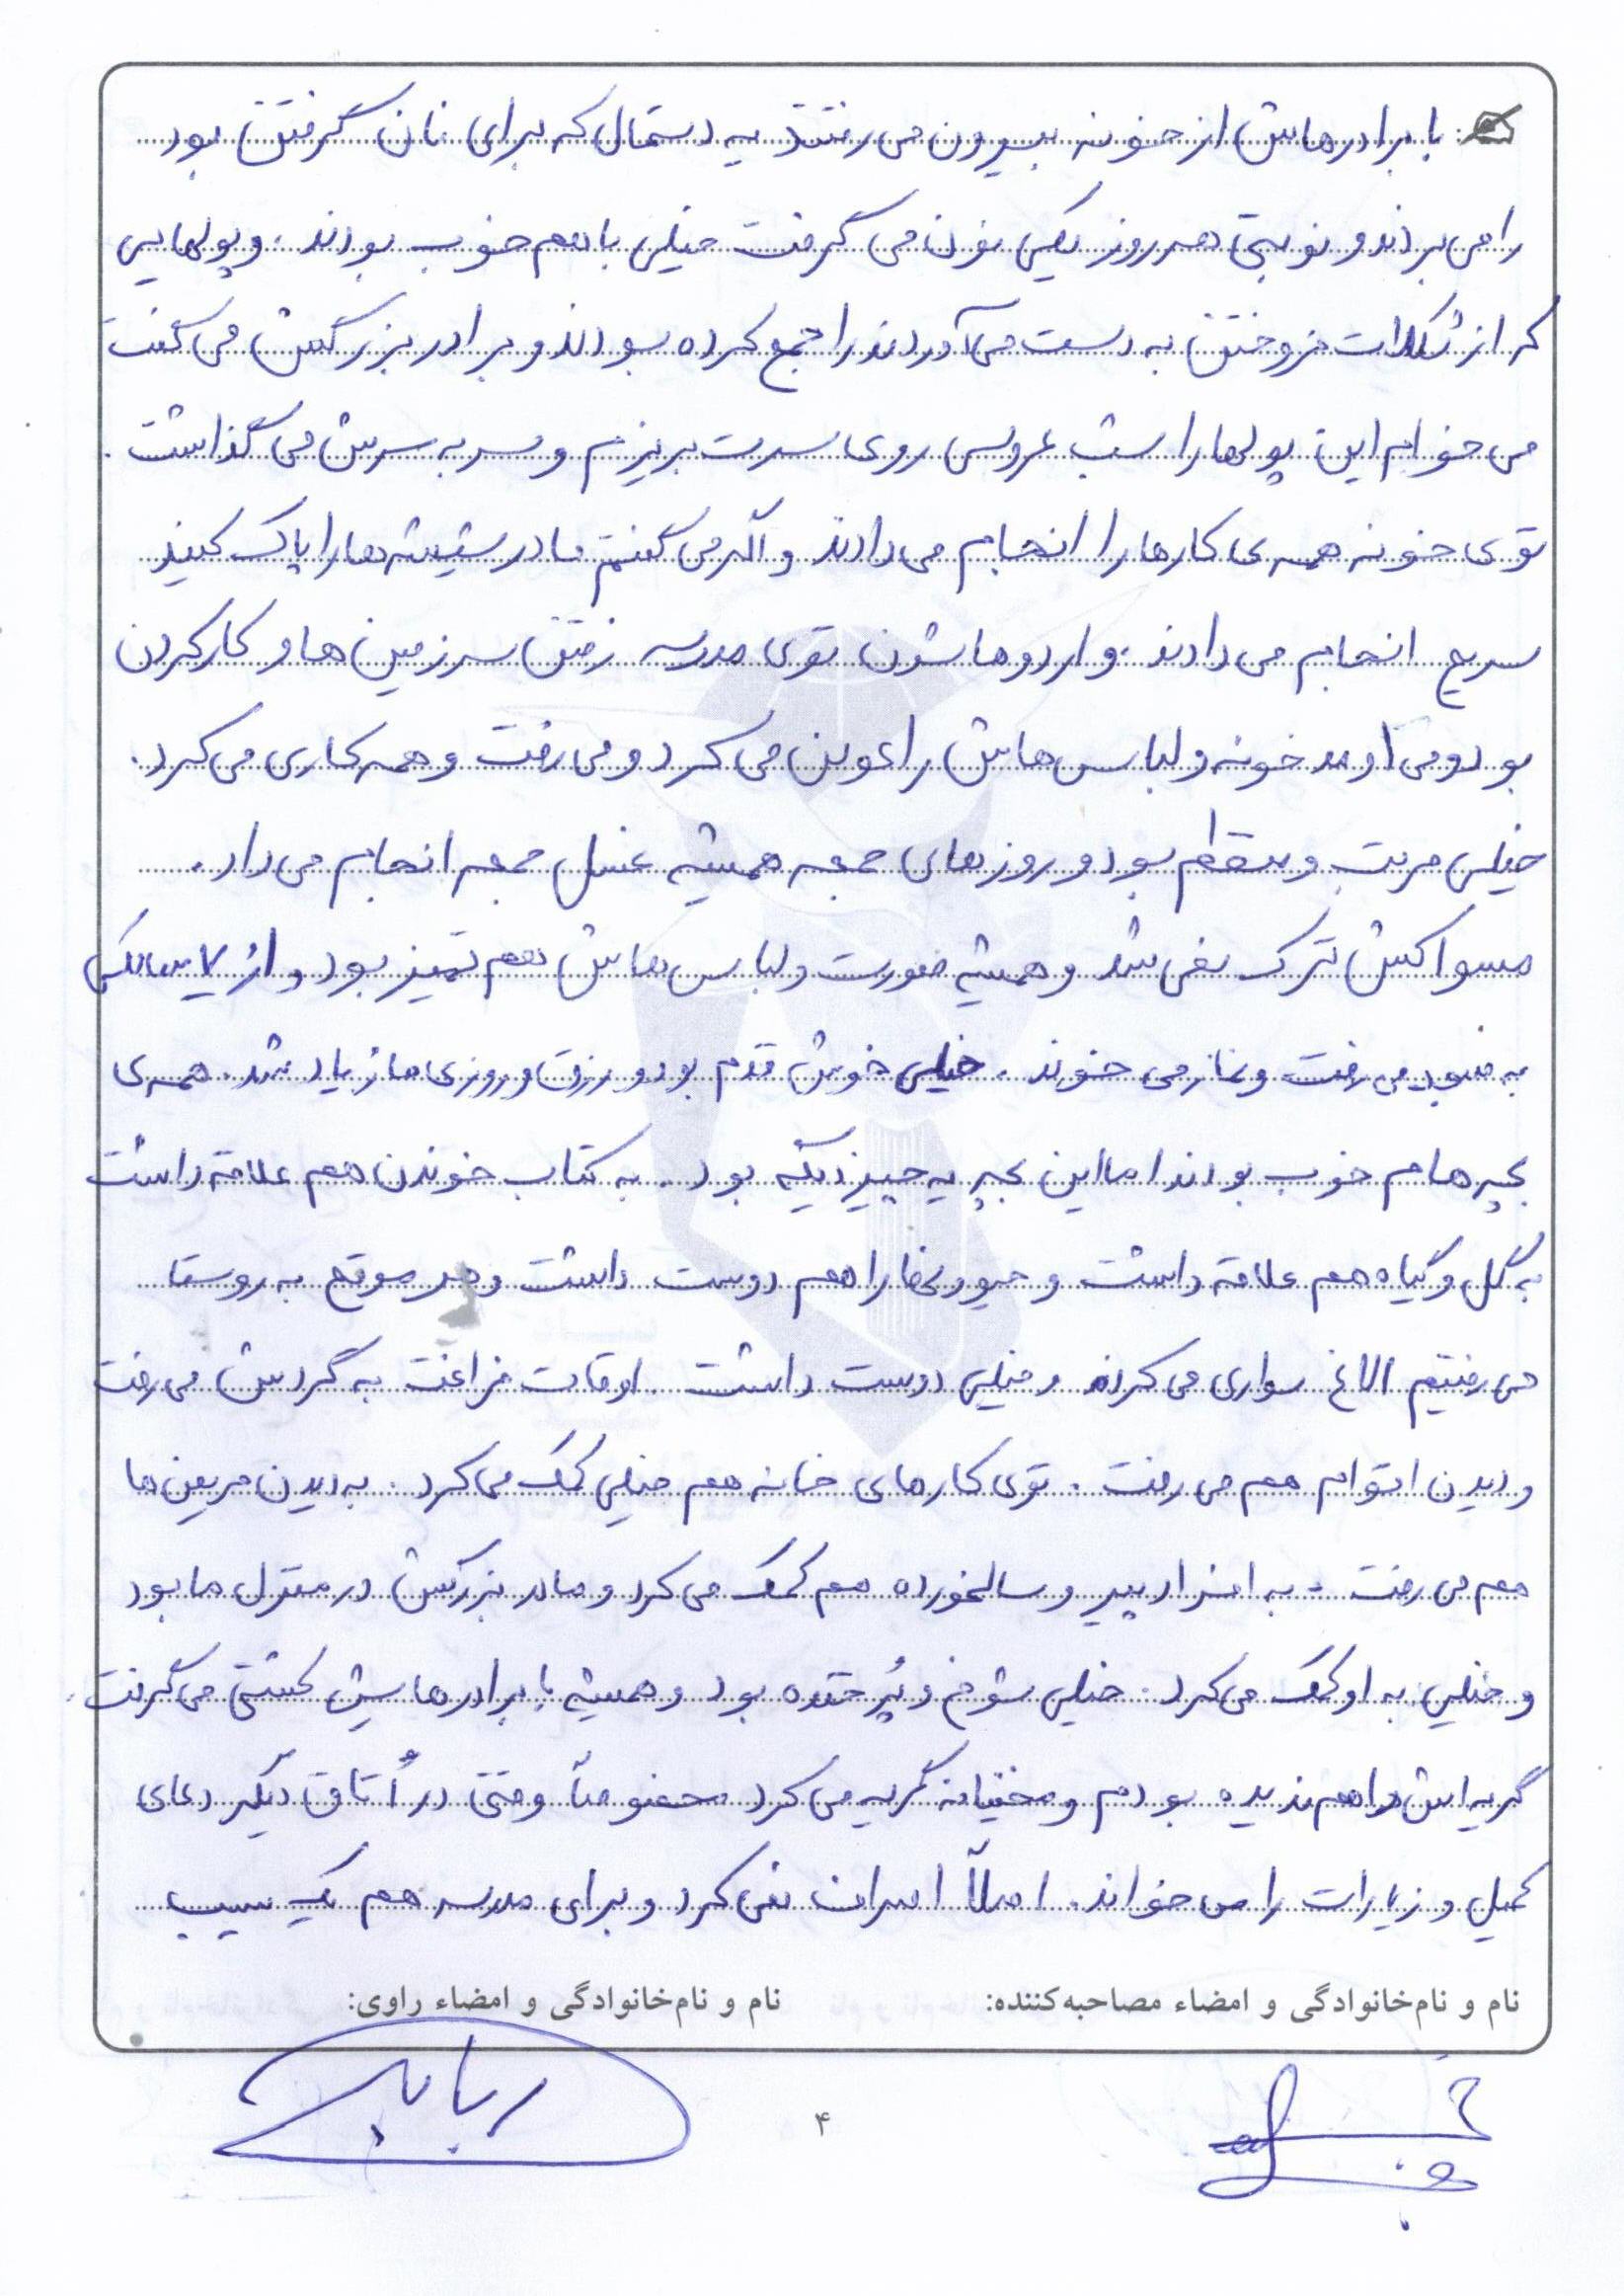 با برادرهاش از خونه بیرون می رفتند یه دستمال که برای نان گرفتن بود
را می بردند و نوبتی هر روز یکی نون می گرفت خیلی با هم خوب بودند. و پولهایی
که از شکلات فروختن به دست می آوردند را جمع کرده بودند و برادر بزرگش می گفت
می خوام این پولها را شب عروسی روی سرت بریزم و سر به سرش می گذاشت.
توی خونه همه ی کارها را انجام می دادند و اگر می گفتم مادر شیشه ها را پاک کنید
سریع انجام می دادند. و اردوهاشون توی مدرسه رفتن سر زمین ها و کار کردن
بود و می اومد خونه و لباس هاش را عوض می کرد و می رفت و همه کاری می کرد.
خیلی مرتب و منظم بود و روزهای جمعه همیشه غسل جمعه انجام می داد.
مسواکش ترک نمی شد و همیشه صورت و لباس هاش هم تمیز بود و از ۷ سالگی
به مسجد می رفت و نماز می خوند. خیلی خوش قدم بود و رزق و روزی ما زیاد شد. همه ی
بچه هام خوب بودند اما این بچه یه چیز دیگه بود. به کتاب خوندن هم علاقه داشت
به گل و گیاه هم علاقه داشت و حیوونها را هم دوست داشت و هر موقع به روستا
می رفتیم الاغ سواری می کرد و خیلی دوست داشت. اوقات فراغت به گردش می رفت
و دیدن اقوام هم می رفت. توی کارهای خانه هم خیلی کمک می کرد. به دیدن مریض ها
هم می رفت - به افراد پیر و سالخورده هم کمک می کرد و مادر بزرگش در منزل ما بود
و خیلی به او کمک می کرد. خیلی شوخ و پُر خنده بود و همیشه با برادرهایش کشتی می گرفت.
گریه اش را هم ندیده بودم و مخفیانه گریه می کرد مخصوصاً وقتی در اُتاق دیگر دعای
کمیل و زیارات را می خواند. اصلاً اسراف نمی کرد و برای مدرسه هم یک سیب
نام و نام‌خانوادگی و امضاء مصاحبه‌کننده: نام و نام‌خانوادگی و امضاء راوی:
۴